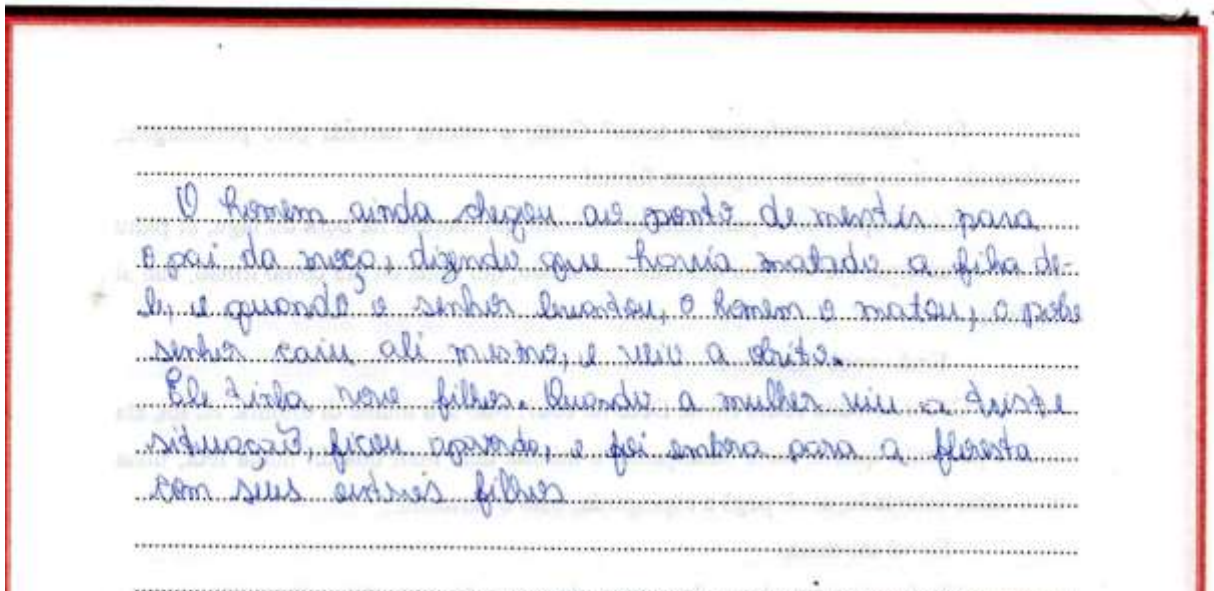 O homem ainda chegou ao ponto de mentir para
o pai da moça, dizendo que havia matado a filha de-
le, e quando o senhor levantou, o homem o matou, o pobe
senhor caiu ali mesmo, e veio a obito.
Ele tinha nove filhos. Quando a mulher viu a triste
situação, ficou apavorda, e foi embora para a floresta
com seus outros filhos